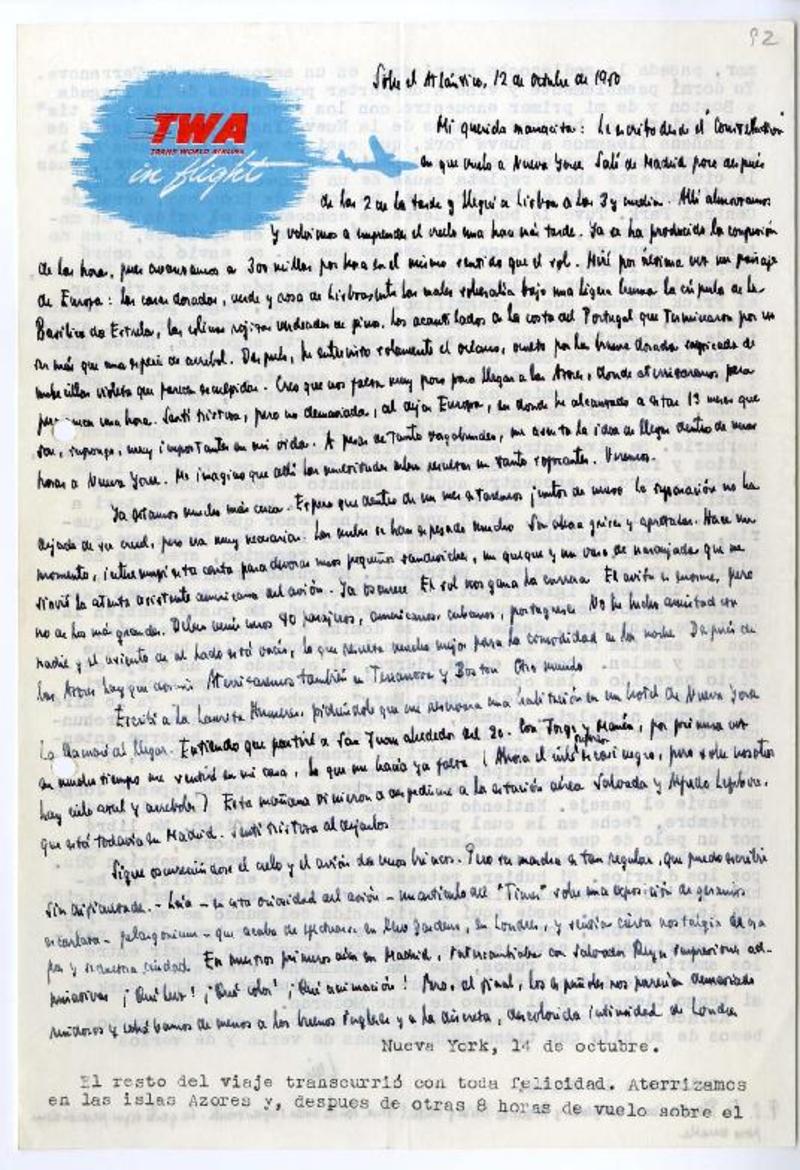 92
Sobre el Atlántico, 12 de octubre de 1950
TWA
TRANS WORLD AIRLINE
in flight
Mi querida mamacita: Le escribo desde el "Constellation"
en que vuelo a Nueva York. Salí de Madrid poco después
de las 2 de la tarde y llegué a Lisboa a las 3 y media. Allí almorzamos
y volvimos a emprender el vuelo una hora más tarde. Ya se ha producido la confusión
de las horas, pues avanzamos a 300 millas por hora en el mismo sentido que el sol. Miré por última vez un paisaje
de Europa: las casas doradas, verde y rosa de Lisboa entre las cuales sobresalía bajo una ligera bruma la cúpula de la
Basílica da Estrela, las colinas rojizas de pinos, los acantilados a la costa del Portugal que terminaron por no
ser más que una especie de arrebol. Después, he entrevisto solamente el océano, oculto por la bruma dorada
nubecillas violeta que parecen sumergidas. Creo que nos falta muy poco para llegar a las Azores, donde aterrizaremos para
permanecer una hora. Sentí tristeza, pero no demasiada, al dejar Europa, en donde he alcanzado a estar 13 meses que
son, supongo, muy importantes en mi vida. A pesar de tanto vagabundeo, me asusta la idea de llegar dentro de unas
horas a Nueva York. Me imagino que allí las universidades deben resultar un tanto sofocantes. Veremos.
Ya estamos mucho más cerca. Espero que dentro de un mes estaremos juntos de nuevo. La separación no ha
dejado de ser cruel, pero era muy necesaria. Las nubes se han espesado mucho. Son ahora grises y apretadas. Hace un
momento, interrumpí esta carta para devorar unos pequeños sandwiches, un queque y un vaso de naranjada que me
sirvió la atenta asistente americana del avión. Ya oscurece. El sol nos gana la carrera. El avión es enorme, pero
no de los más grandes. Deben venir unos 40 pasajeros, americanos, cubanos, portugueses. No he hecho amistad con
nadie y el asiento de al lado está vacío, lo que resulta mucho mejor para la comodidad en la noche. Después de
las Azores hay que dormir. Aterrizaremos también en Terranova y Boston. Otro mundo.
Escribí a la Laurita, pidiéndole que me reservara una habitación en un hotel de Nueva York
La llamaré al llegar. Entiendo que partiré a San Juan alrededor del 20. Con Jorge y María, por primera vez
en mucho tiempo me sentiré en mi casa, lo que me hacía ya falta (Ahora el cielo inferior es casi negro, pero sobre nosotros
hay cielo azul y arreboles) Esta mañana vinieron a despedirme a la estación aérea Salvador y Alfredo Lefebvre,
que está todavía en Madrid. Sentí tristeza al dejarlos
Sigue oscureciéndose el cielo y el avión da unos brincos. Pero su marcha es tan regular, que puedo escribir
sin dificultad. - Leía - en esta oscuridad del avión - un artículo del "Times" sobre una exposición de geranios
escarlata - pelargonium - que acaba de efectuarse en Kew Gardens, en Londres, y sentía cierta nostalgia de esa
paz y secreta ciudad. En nuestros primeros días en Madrid, intercambiaba con Salvador Reyes impresiones ad-
mirativas ¡Qué luz! ¡Qué color! ¡Qué animación! Pero, al final, los españoles nos parecían demasiado
ruidosos y echábamos de menos a los buenos ingleses y a la discreta, descolorida intimidad de Londres
Nueva York, 14 de octubre.
El resto del viaje transcurrió con toda felicidad. Aterrizamos
en las islas Azores y, despues de otras 8 horas de vuelo sobre el